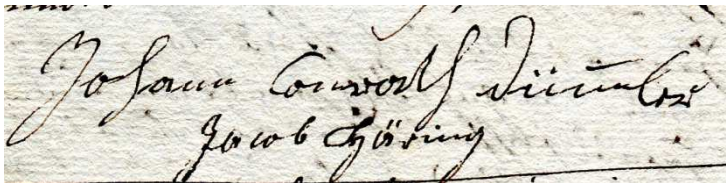 Johann Conrath Dümler
Jacob Häring